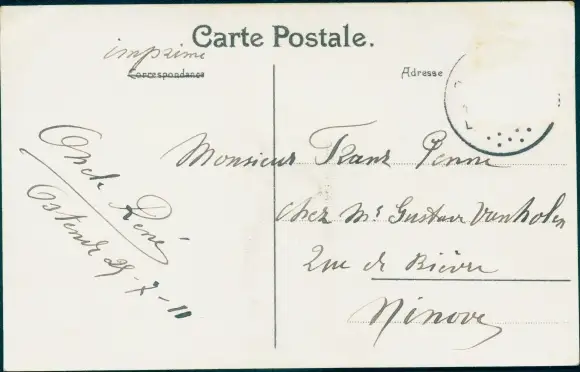 Carte Postale.
imprimé
Correspondance
Adresse
Oncle René
Ostende 25-7-11
Monsieur Franz Penne
chez Mr Gustave Vanholen
Rue de Bièvre
Ninove